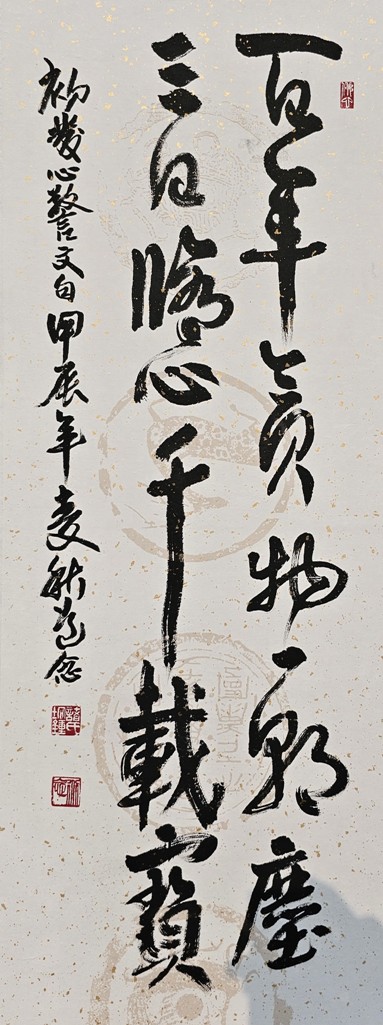 百年貪物一朝塵
三日脩心千載寶
初發心警文自甲辰年夏